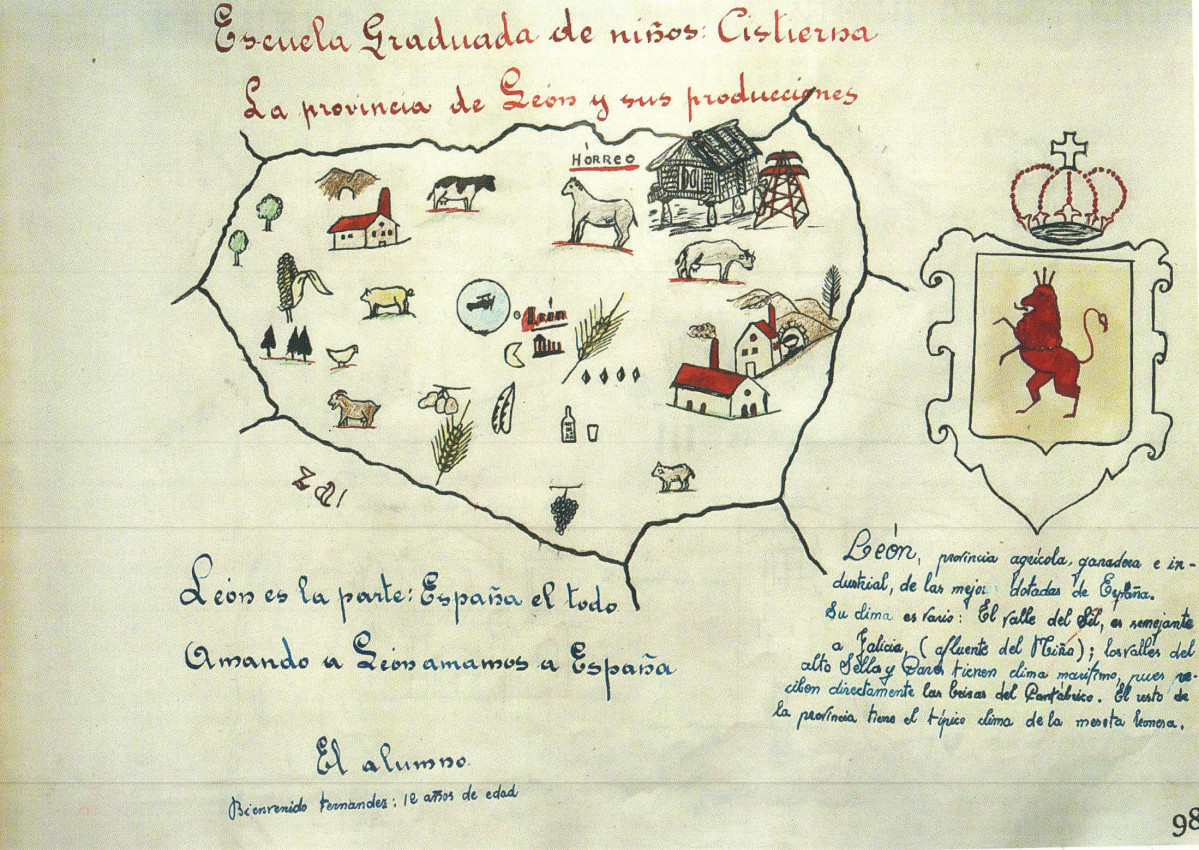 Escuela Graduada de niños: Cistierna
La provincia de León y sus producciones
HÓRREO
León
León es la parte: España el todo
Amando a León amamos a España
El alumno
Bienvenido Fernandez: 12 años de edad
León, provincia agrícola, ganadera e in-
dustrial, de las mejor dotadas de España.
Su clima es vario: El valle del Sil, es semejante
a Galicia, (afluente del Miño); los valles del
alto Sella y Cares tienen clima marítimo, pues re-
ciben directamente las brisas del Cantábrico. El resto de
la provincia tiene el típico clima de la meseta leonesa.
98